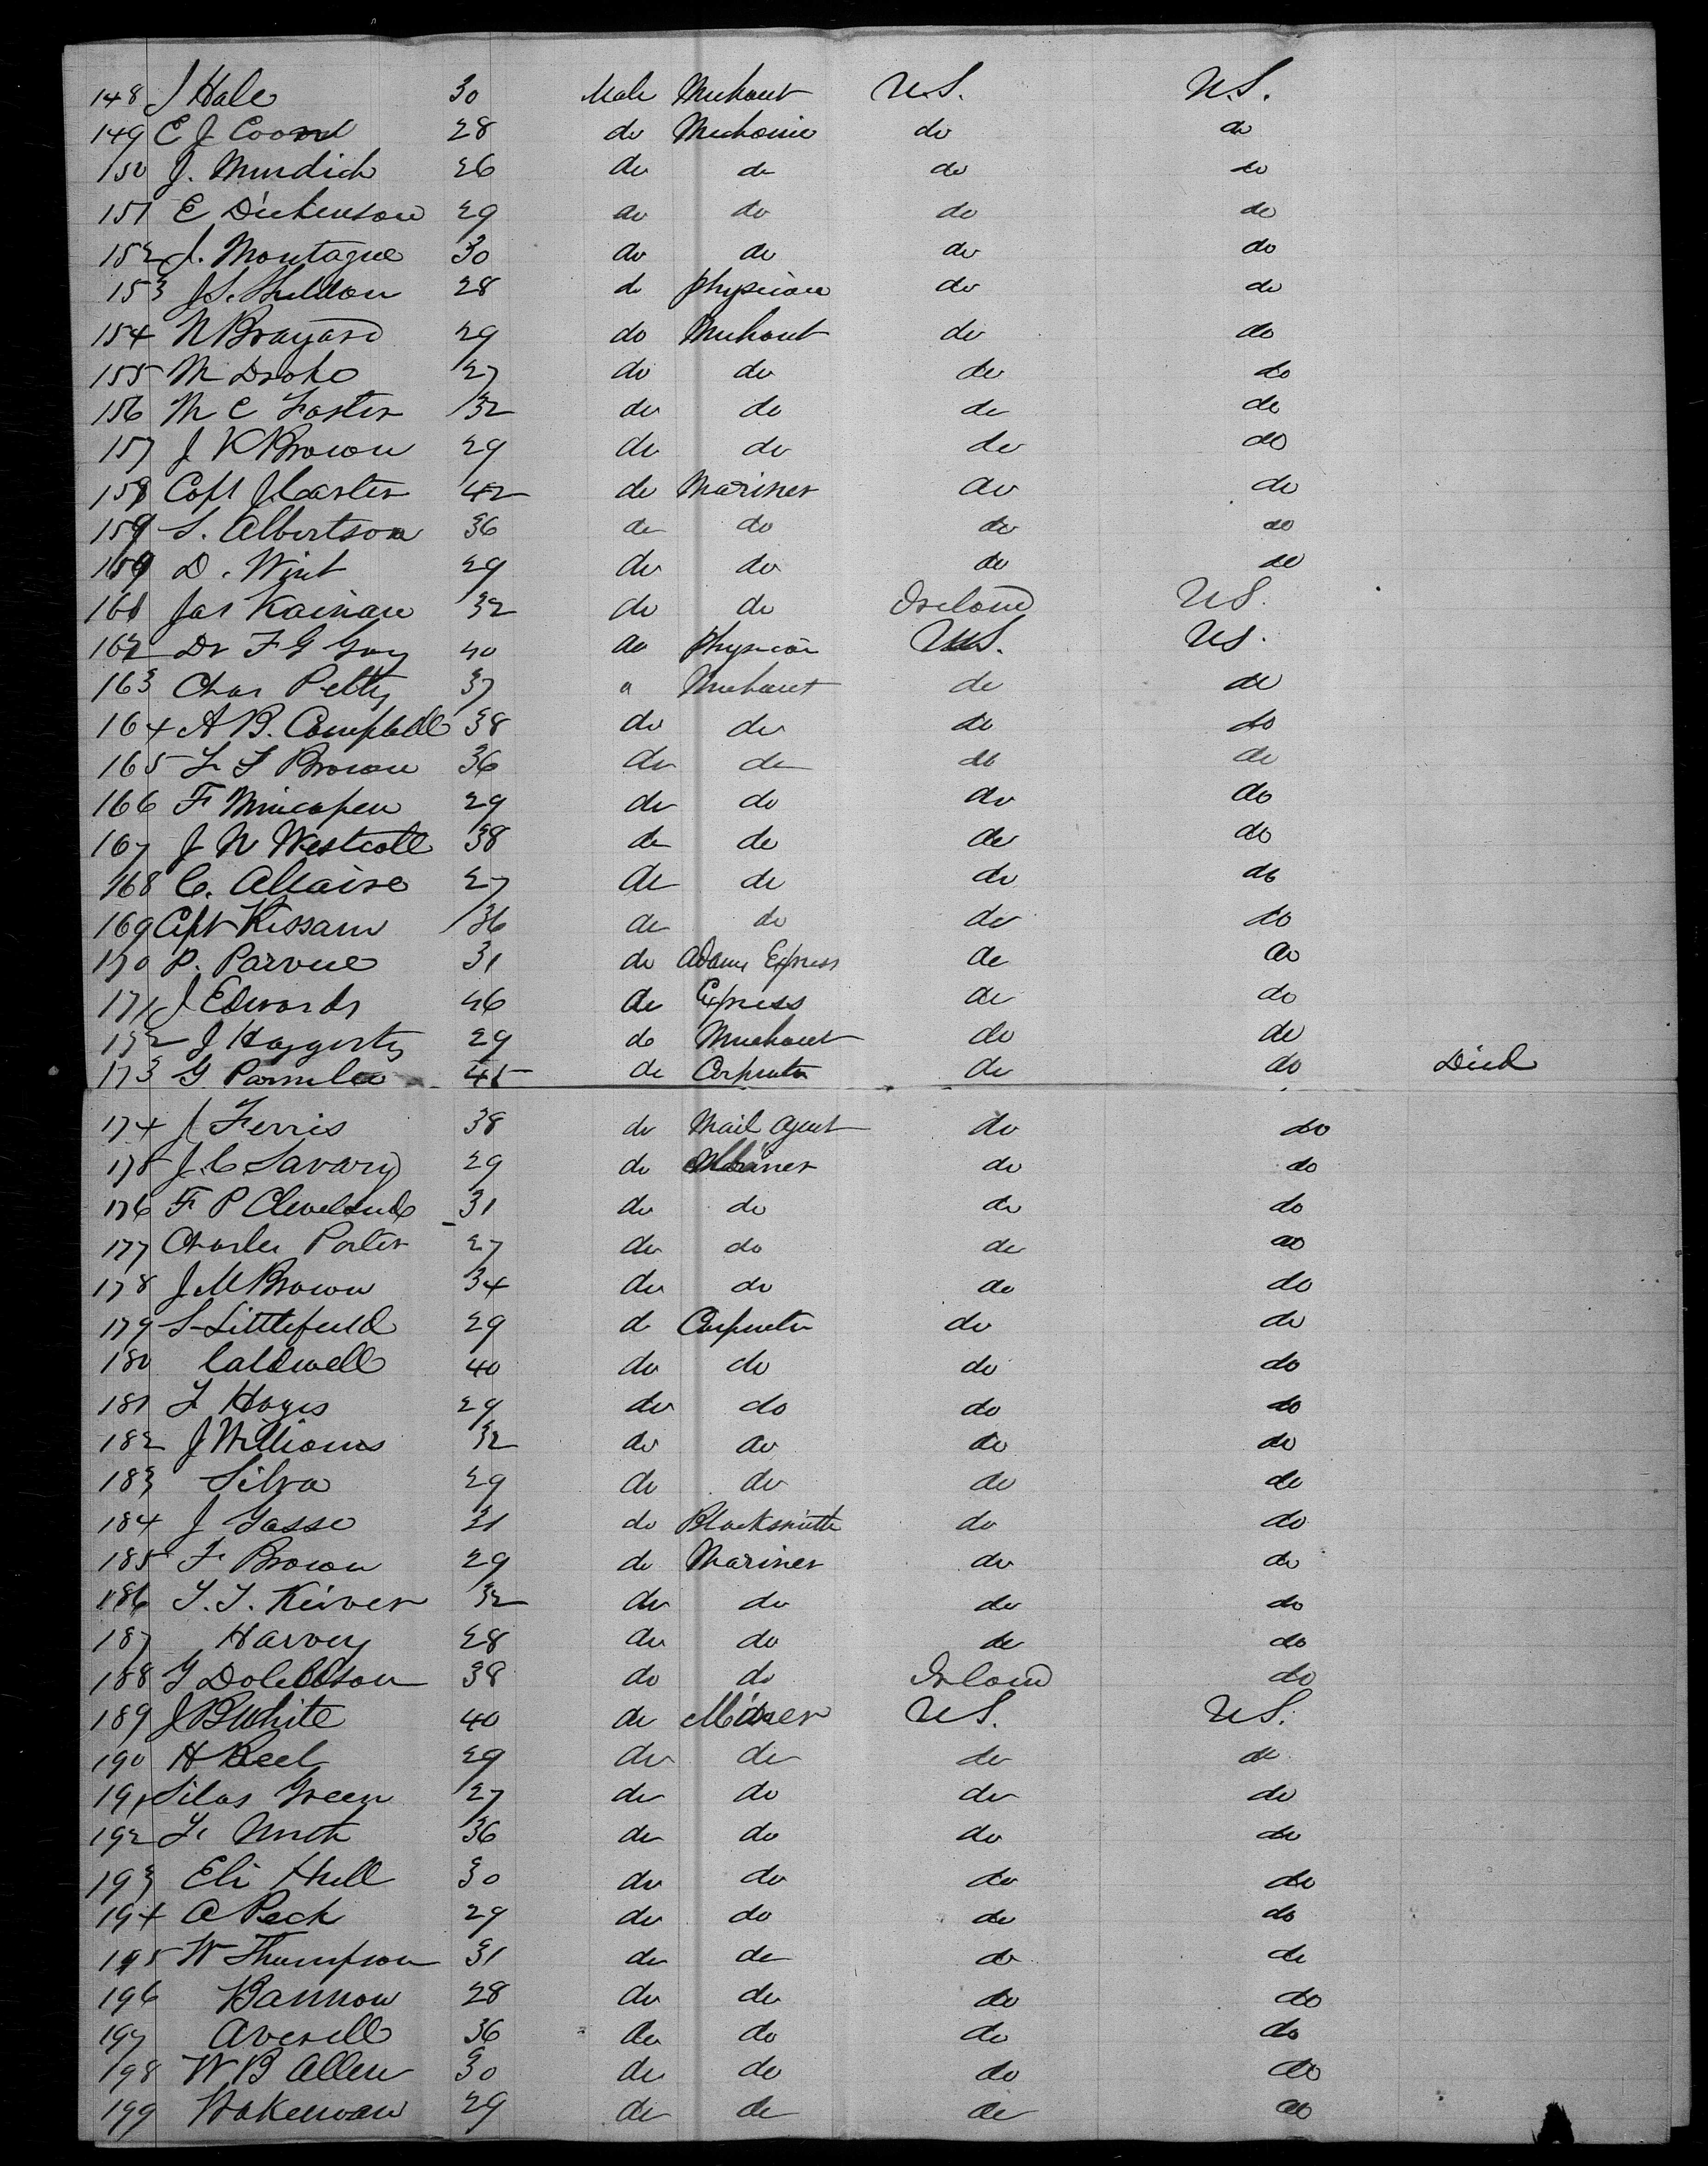 148 J Hale 30 Male Merchant U.S. U.S.
149 E J 28 do Mechanic do do
150 J. Mindich 26 do do do do
151 E Dickenson 29 do do do do
152 J. Montague 30 do do do do
153 J S. Sheldon 28 do physician do do
154 N Brayard 29 do Merchant do do
155 M Drake 27 do do do do
156 M C Foster 32 do do do do
157 J K Brown 29 do do do do
158 Capt J Carter 42 do Mariner do do
159 S. Albertson 36 do do do do
D. Wint 29 do do do do
161 Jas Kainan 32 do do Ireland U S.
162 Dr F G 40 do physician U.S. U S.
163 Chas Petty 37 Merchant do do
164 A B. Campbell 38 do do do do
165 L F Brown 36 do do do do
166 F 29 do do do do
167 J N Westcott 38 do do do do
168 C. Allaire 27 do do do do
169 Capt Kissam 36 do do do do
170 P. Parvue 31 do Adams Express do do
171 J Edwards 46 do Express do do
172 J Haggerty 29 do Merchant do do
173 G Parmlee 45 do Carpenter do do Died
174 J Ferris 38 do Mail Agent do do
175 J. C Savary 29 do Mariner do do
176 F P Cleveland 31 do do do do
177 Charles Porter 27 do do do do
178 J M Brown 34 do do do do
179 S Littlefield 29 do Carpenter do do
180 Caldwell 40 do do do do
181 L Hayes 29 do do do do
182 J Williams 32 do do do do
183 Silva 29 do do do do
184 J Gasse 31 do Blacksmith do do
185 F. Brown 29 do Mariner do do
186 T. T. Keiver 32 do do do do
187 Harvey 28 do do do do
188 G 38 do do Ireland do
189 J B White 40 do Miner U S. U S.
190 H Keel 29 do do do do
191 Silas Green 27 do do do do
192 36 do do do do
193 Eli Hull 30 do do do do
194 A Peck 29 do do do do
195 W Thompson 31 do do do do
196 Bannon 28 do do do do
197 Averell 36 do do do do
198 W B Allen 30 do do do do
199 Wakeman 29 do do do do